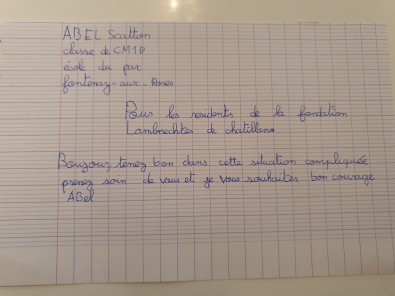 ABEL Scatton
classe de CM1B
école du parc
fontenay-aux-Roses
Pour les residents de la fondation
Lambrechts de chatillon
Boujour, tenez bon dans cette situation compliquée
prenez soin de vous et je vous souhaites bon courage
ABel